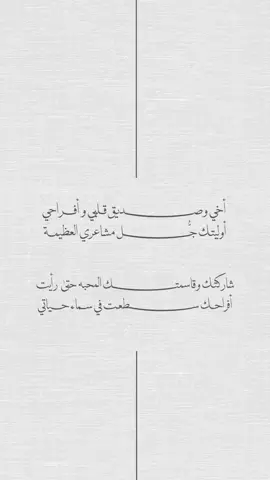 أخي وصديق قلبي وأفراحي
أوليتك جُل مشاعري العظيمة
شاركتك وقاسمتك المحبه حتى رأيت
أفراحك سطعت في سماء حياتي